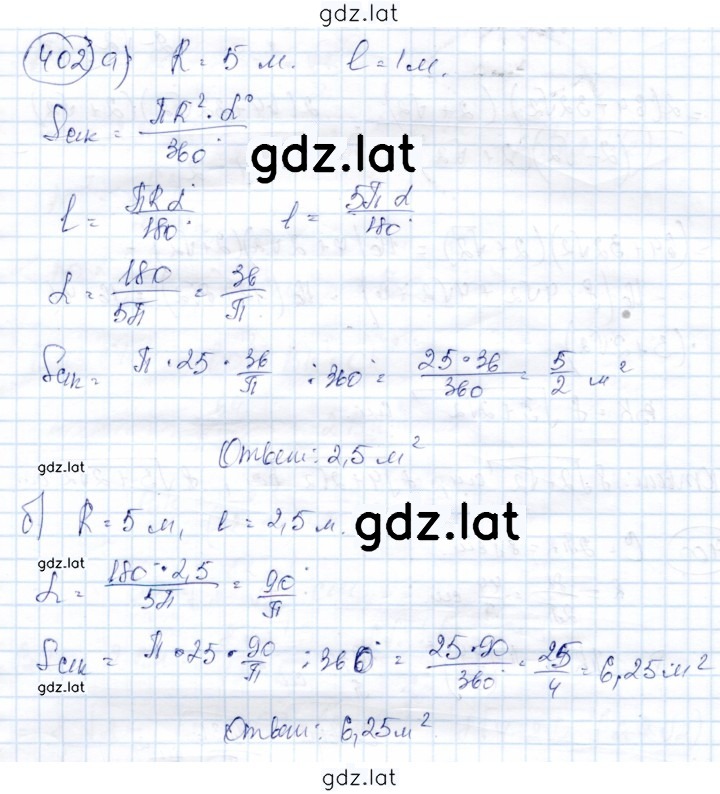 gdz.lat
402 а) R = 5 м. l = 1 м.
Sсек = ПR² · α° / 360°
gdz.lat
l = ПRα / 180° l = 5Пα / 180°
α = 180 / 5П = 36 / П
Sсек = П · 25 · 36/П : 360° = 25·36 / 360 = 5/2 м²
Ответ: 2,5 м²
gdz.lat
б) R = 5 м, l = 2,5 м.
gdz.lat
gdz.lat
α = 180 · 2,5 / 5П = 90° / П
Sсек = П · 25 · 90/П : 360° = 25·90 / 360° = 25/4 = 6,25 м²
gdz.lat
Ответ: 6,25 м²
gdz.lat